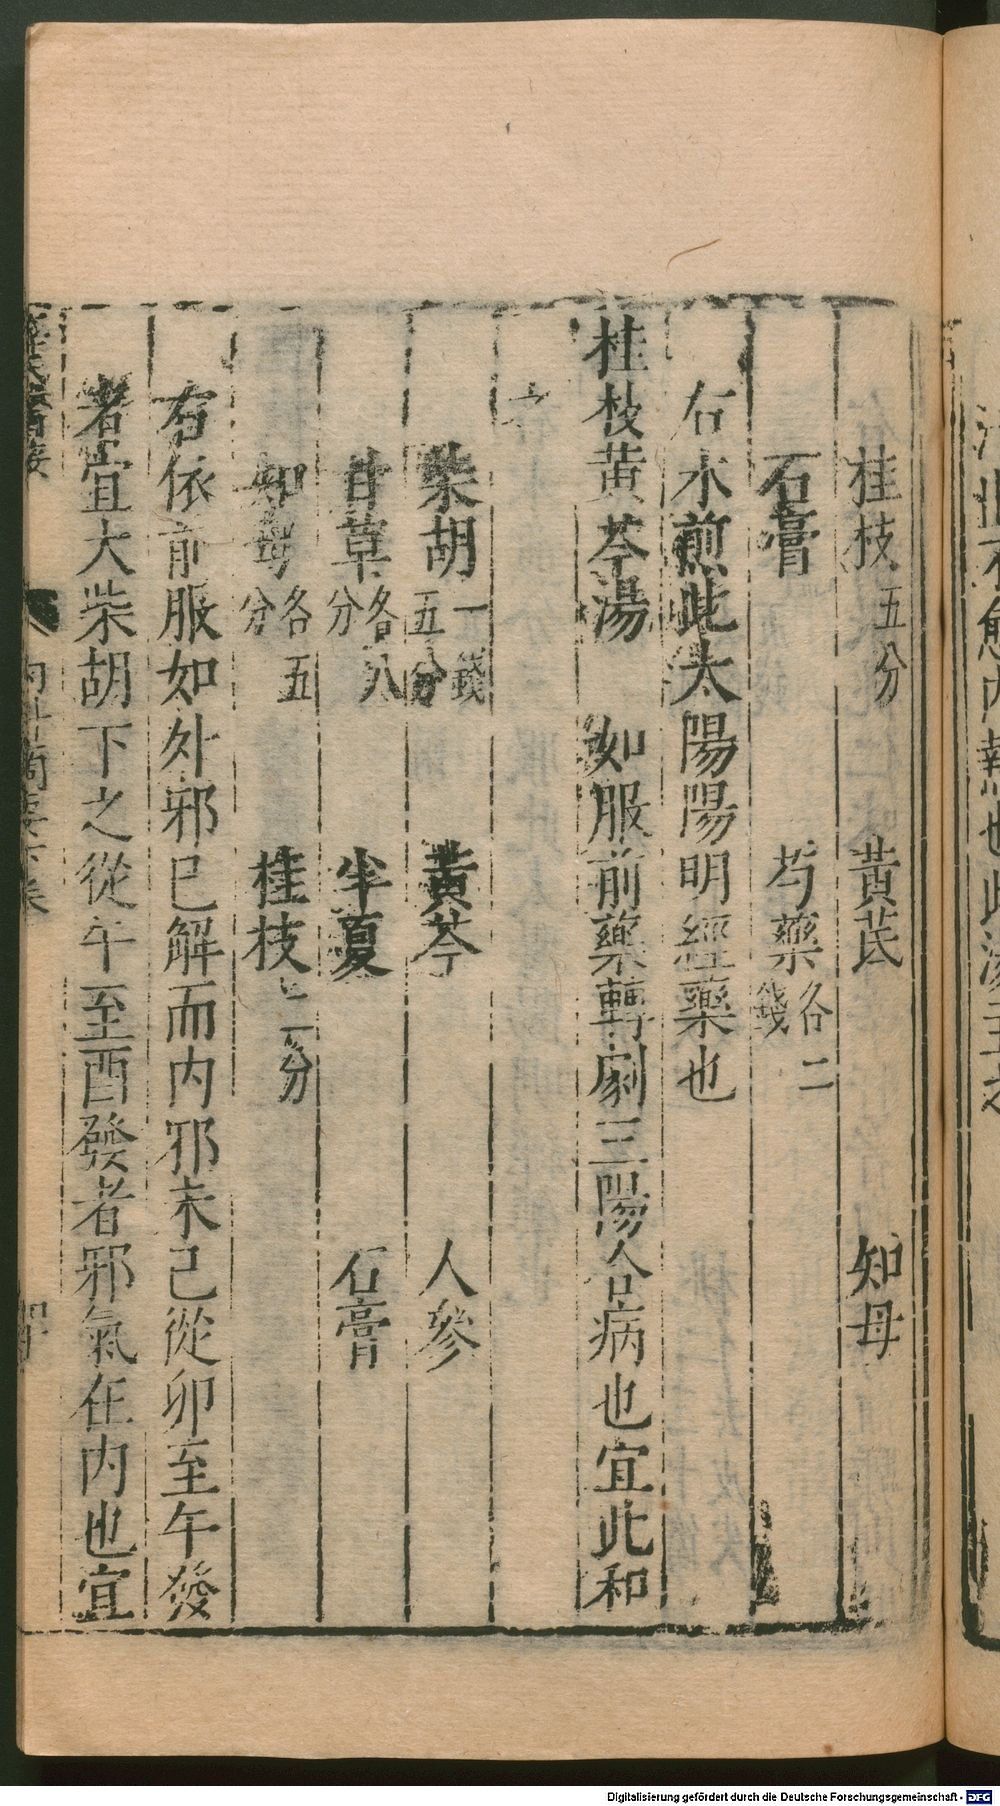 桂枝五分 黃芪 知母
石膏 芍藥各二錢
右水煎此太陽陽明經藥也
桂枝黃芩湯 如服前藥轉劇三陽合病也宜此和
之
柴胡一錢五分 黃芩 人參
甘草各八分 半夏 石膏
知母各五分 桂枝二分
右依前服如外邪已解而內邪未已從卯至午發
者宜大柴胡下之從午至酉發者邪氣在內也宜
內科摘要下卷
Digitalisierung gefördert durch die Deutsche Forschungsgemeinschaft - DFG